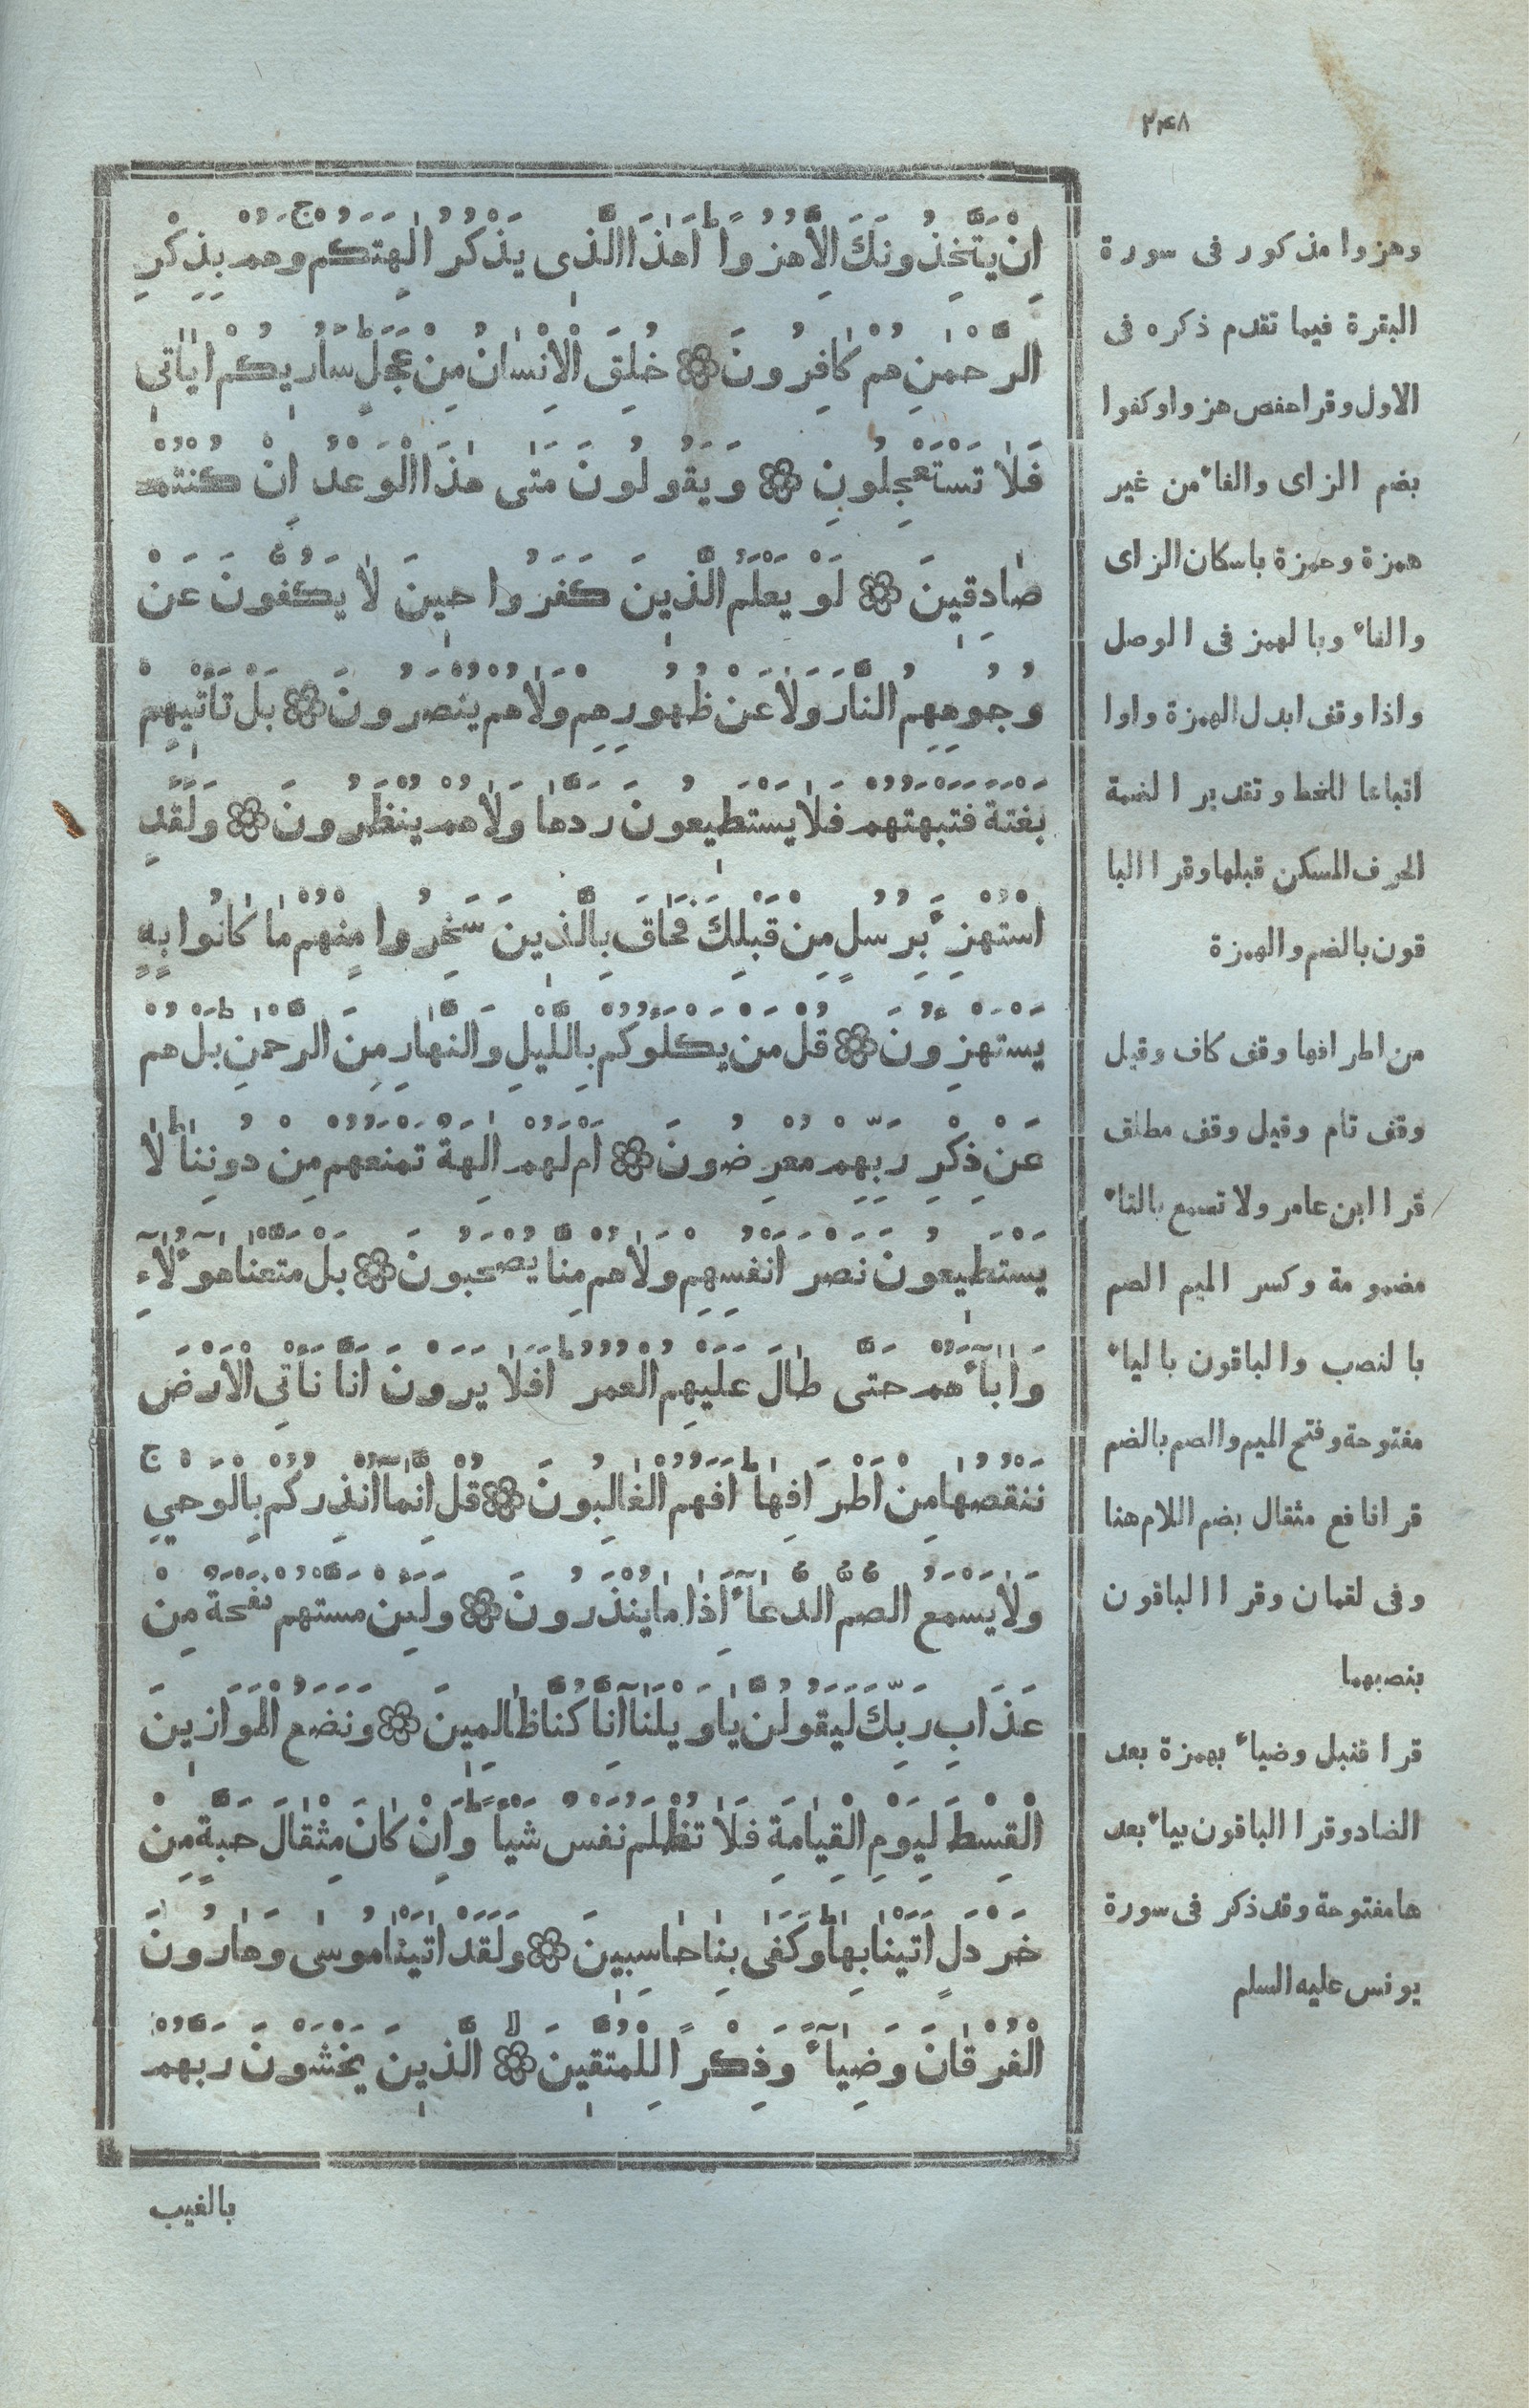 ٢٤٨
اِنْ يَتَّخِذُونَكَ اِلَّا هُزُوًا ط اَهٰذَا الَّذٖى يَذْكُرُ اٰلِهَتَكُمْ ج وَهُمْ بِذِكْرِ
الرَّحْمٰنِ هُمْ كَافِرُونَ ۞ خُلِقَ الْاِنْسَانُ مِنْ عَجَلٍ ط سَاُرٖيكُمْ اٰيَاتٖى
فَلَا تَسْتَعْجِلُونِ ۞ وَيَقُولُونَ مَتٰى هٰذَا الْوَعْدُ اِنْ كُنْتُمْ
صَادِقٖينَ ۞ لَوْ يَعْلَمُ الَّذٖينَ كَفَرُوا حٖينَ لَا يَكُفُّونَ عَنْ
وُجُوهِهِمُ النَّارَ وَلَا عَنْ ظُهُورِهِمْ وَلَا هُمْ يُنْصَرُونَ ۞ بَلْ تَأْتٖيهِمْ
بَغْتَةً فَتَبْهَتُهُمْ فَلَا يَسْتَطٖيعُونَ رَدَّهَا وَلَا هُمْ يُنْظَرُونَ ۞ وَلَقَدِ
اسْتُهْزِءَ بِرُسُلٍ مِنْ قَبْلِكَ فَحَاقَ بِالَّذٖينَ سَخِرُوا مِنْهُمْ مَا كَانُوا بِهٖ
يَسْتَهْزِؤُنَ ۞ قُلْ مَنْ يَكْلَؤُكُمْ بِاللَّيْلِ وَالنَّهَارِ مِنَ الرَّحْمٰنِ ط بَلْ هُمْ
عَنْ ذِكْرِ رَبِّهِمْ مُعْرِضُونَ ۞ اَمْ لَهُمْ اٰلِهَةٌ تَمْنَعُهُمْ مِنْ دُونِنَا ط لَا
يَسْتَطٖيعُونَ نَصْرَ اَنْفُسِهِمْ وَلَا هُمْ مِنَّا يُصْحَبُونَ ۞ بَلْ مَتَّعْنَا هٰٓؤُلَآءِ
وَاٰبَآءَهُمْ حَتّٰى طَالَ عَلَيْهِمُ الْعُمُرُ ط اَفَلَا يَرَوْنَ اَنَّا نَأْتِى الْاَرْضَ
نَنْقُصُهَا مِنْ اَطْرَافِهَا ط اَفَهُمُ الْغَالِبُونَ ۞ قُلْ اِنَّمَآ اُنْذِرُكُمْ بِالْوَحْيِ ج
وَلَا يَسْمَعُ الصُّمُّ الدُّعَآءَ اِذَا مَا يُنْذَرُونَ ۞ وَلَئِنْ مَسَّتْهُمْ نَفْحَةٌ مِنْ
عَذَابِ رَبِّكَ لَيَقُولُنَّ يَا وَيْلَنَآ اِنَّا كُنَّا ظَالِمٖينَ ۞ وَنَضَعُ الْمَوَازٖينَ
الْقِسْطَ لِيَوْمِ الْقِيٰمَةِ فَلَا تُظْلَمُ نَفْسٌ شَيْـًٔا ط وَاِنْ كَانَ مِثْقَالَ حَبَّةٍ مِنْ
خَرْدَلٍ اَتَيْنَا بِهَا ط وَكَفٰى بِنَا حَاسِبٖينَ ۞ وَلَقَدْ اٰتَيْنَا مُوسٰى وَهَارُونَ
الْفُرْقَانَ وَضِيَآءً وَذِكْرًا لِلْمُتَّقٖينَ ۞ لا الَّذٖينَ يَخْشَوْنَ رَبَّهُمْ
بالغيب
وهزوا مذكور فى سورة
البقرة فيما تقدم ذكره فى
الاول وقرا حفص هزوا وكفوا
بضم الزاى والفاء من غير
همزة وحمزة باسكان الزاى
والفاء وبالهمز فى الوصل
واذا وقف ابدل الهمزة واوا
اتباعا للخط وتقدير الضمة
الحرف المسكن قبلها وقرا البا
قون بالضم والهمزة
من اطرافها وقف كاف وقيل
وقف تام وقيل وقف مطلق
قرا ابن عامر ولا تسمع بالتاء
مضمومة وكسر الميم الصم
بالنصب والباقون بالياء
مفتوحة وفتح الميم والصم بالضم
قرا نافع مثقال بضم اللام هنا
وفى لقمان وقرا الباقون
بنصبهما
قرا قنبل وضياء بهمزة بعد
الضاد وقرا الباقون بياء بعد
ها مفتوحة وقد ذكر فى سورة
يونس عليه السلم